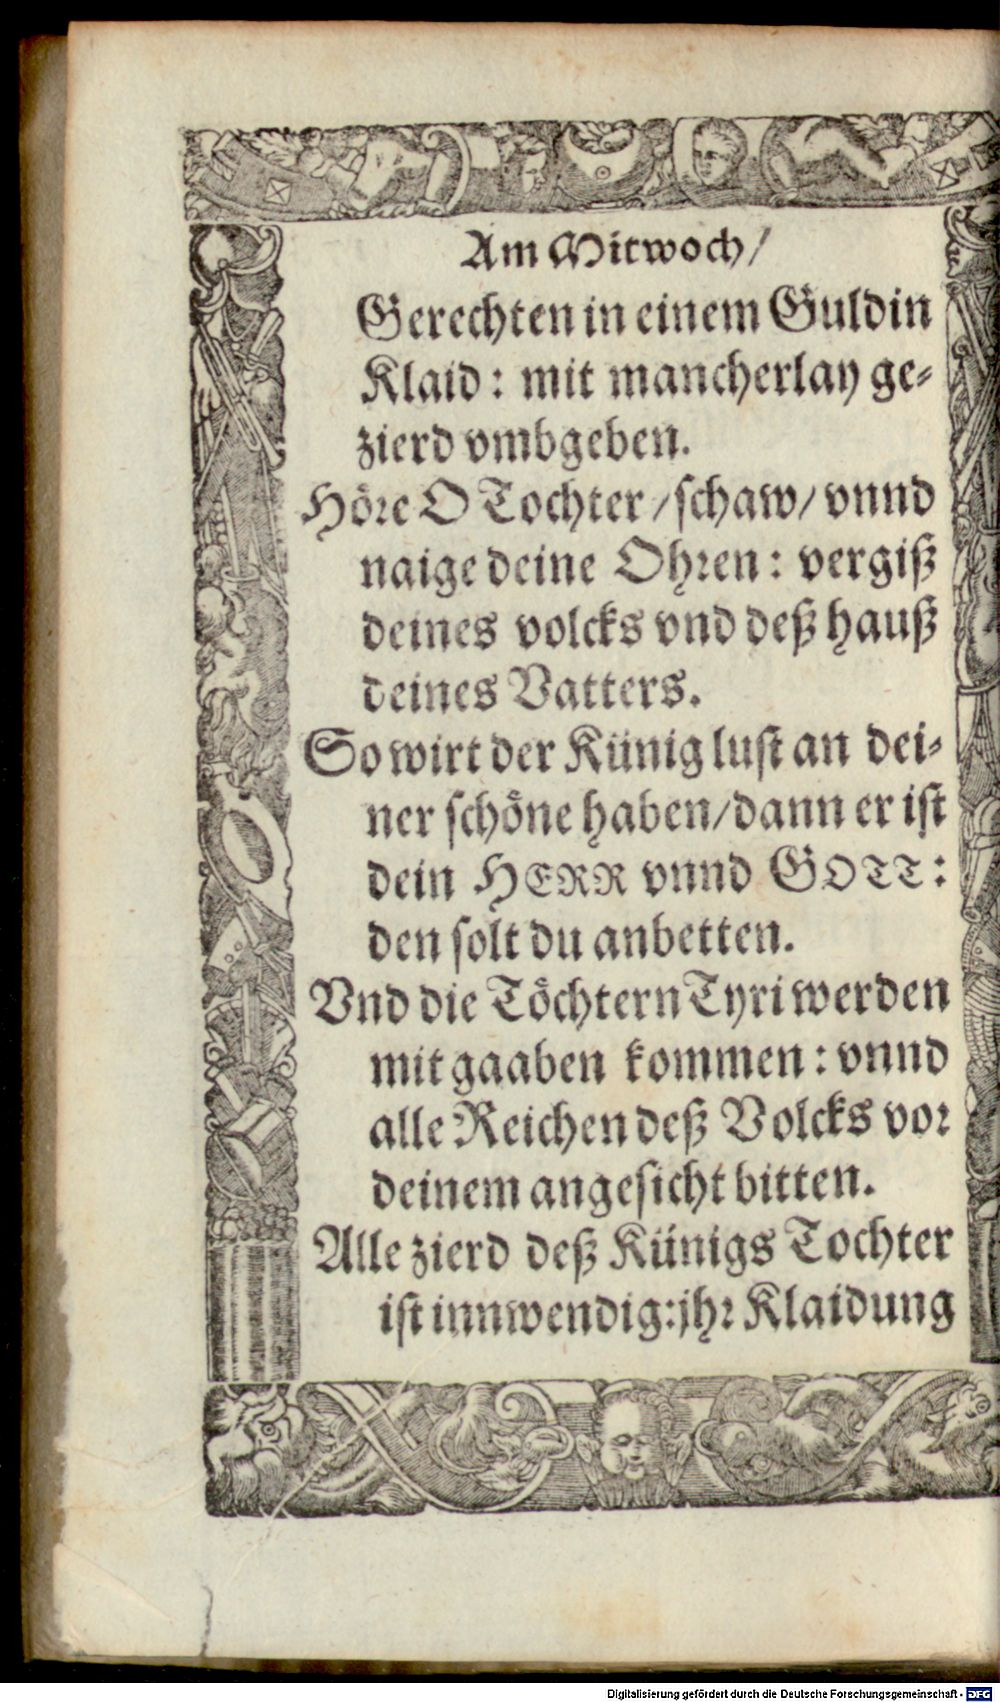 Am Mitwoch/
Gerechten in einem Guldin
Klaid: mit mancherlay ge-
zierd vmbgeben.
Höre O Tochter/schaw/ vnnd
naige deine Ohren: vergiß
deines volcks vnd deß hauß
deines Vatters.
So wirt der Künig lust an dei-
ner schöne haben/dann er ist
dein HERR vnnd GOTT:
den solt du anbetten.
Vnd die Töchtern Tyri werden
mit gaaben kommen: vnnd
alle Reichen deß Volcks vor
deinem angesicht bitten.
Alle zierd deß Künigs Tochter
ist innwendig: jhr Klaidung
Digitalisierung gefördert durch die Deutsche Forschungsgemeinschaft - DFG